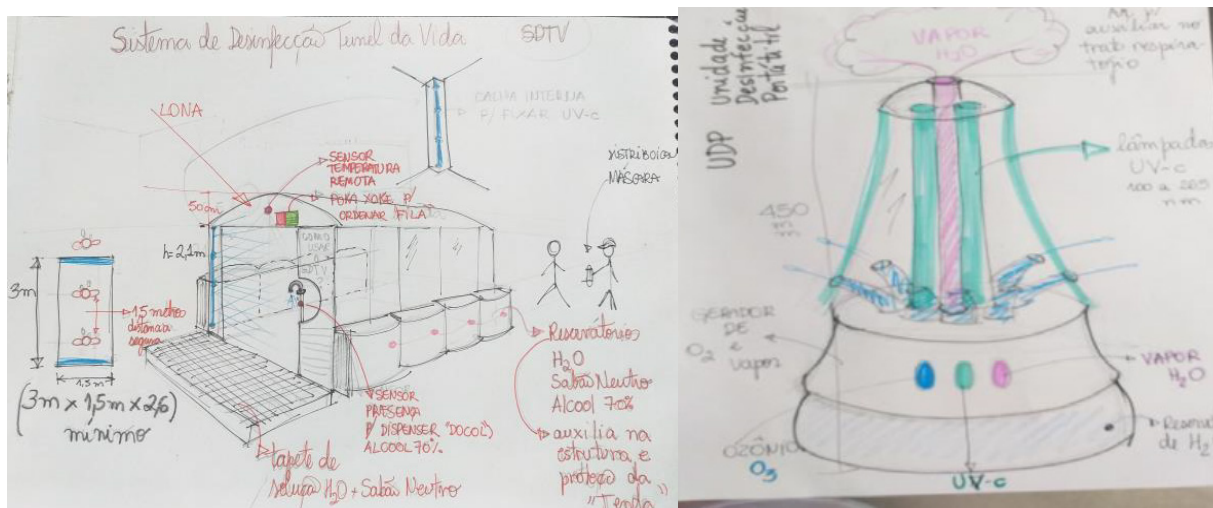 Sistema de Desinfecção Tunel da Vida
SDTV
CALHA INTERNA
P/ FIXAR UV-C
LONA
SENSOR
TEMPERATURA
REMOTA
POKA YOKE P/
ORDENAR "FILA"
50cm
h=2,1m
COMO
USAR
O
SDTV
?
MÁSCARA
3m
1,5 metros
distancia
segura
1,5m
(3m x 1,5m x 2,6)
minimo
SENSOR
PRESENÇA
P/ DISPENSER "DOCOL"
ALCOOL 70%
tapete de
solução H2O + Sabão Neutro
Reservatórios
H2O
Sabão Neutro
Alcool 70%
auxilia na
estrutura e
proteção da
"Tenda"
UDP
Unidade
Desinfecção
Portátil
VAPOR
H2O
Ar p/
auxiliar no
trat. respira-
tório
lâmpada
UV-C
nm
450
mm
GERADOR
DE
O2 e
vapor
VAPOR
H2O
Reserva
de H2
OZÔNIO
O3
UV-c